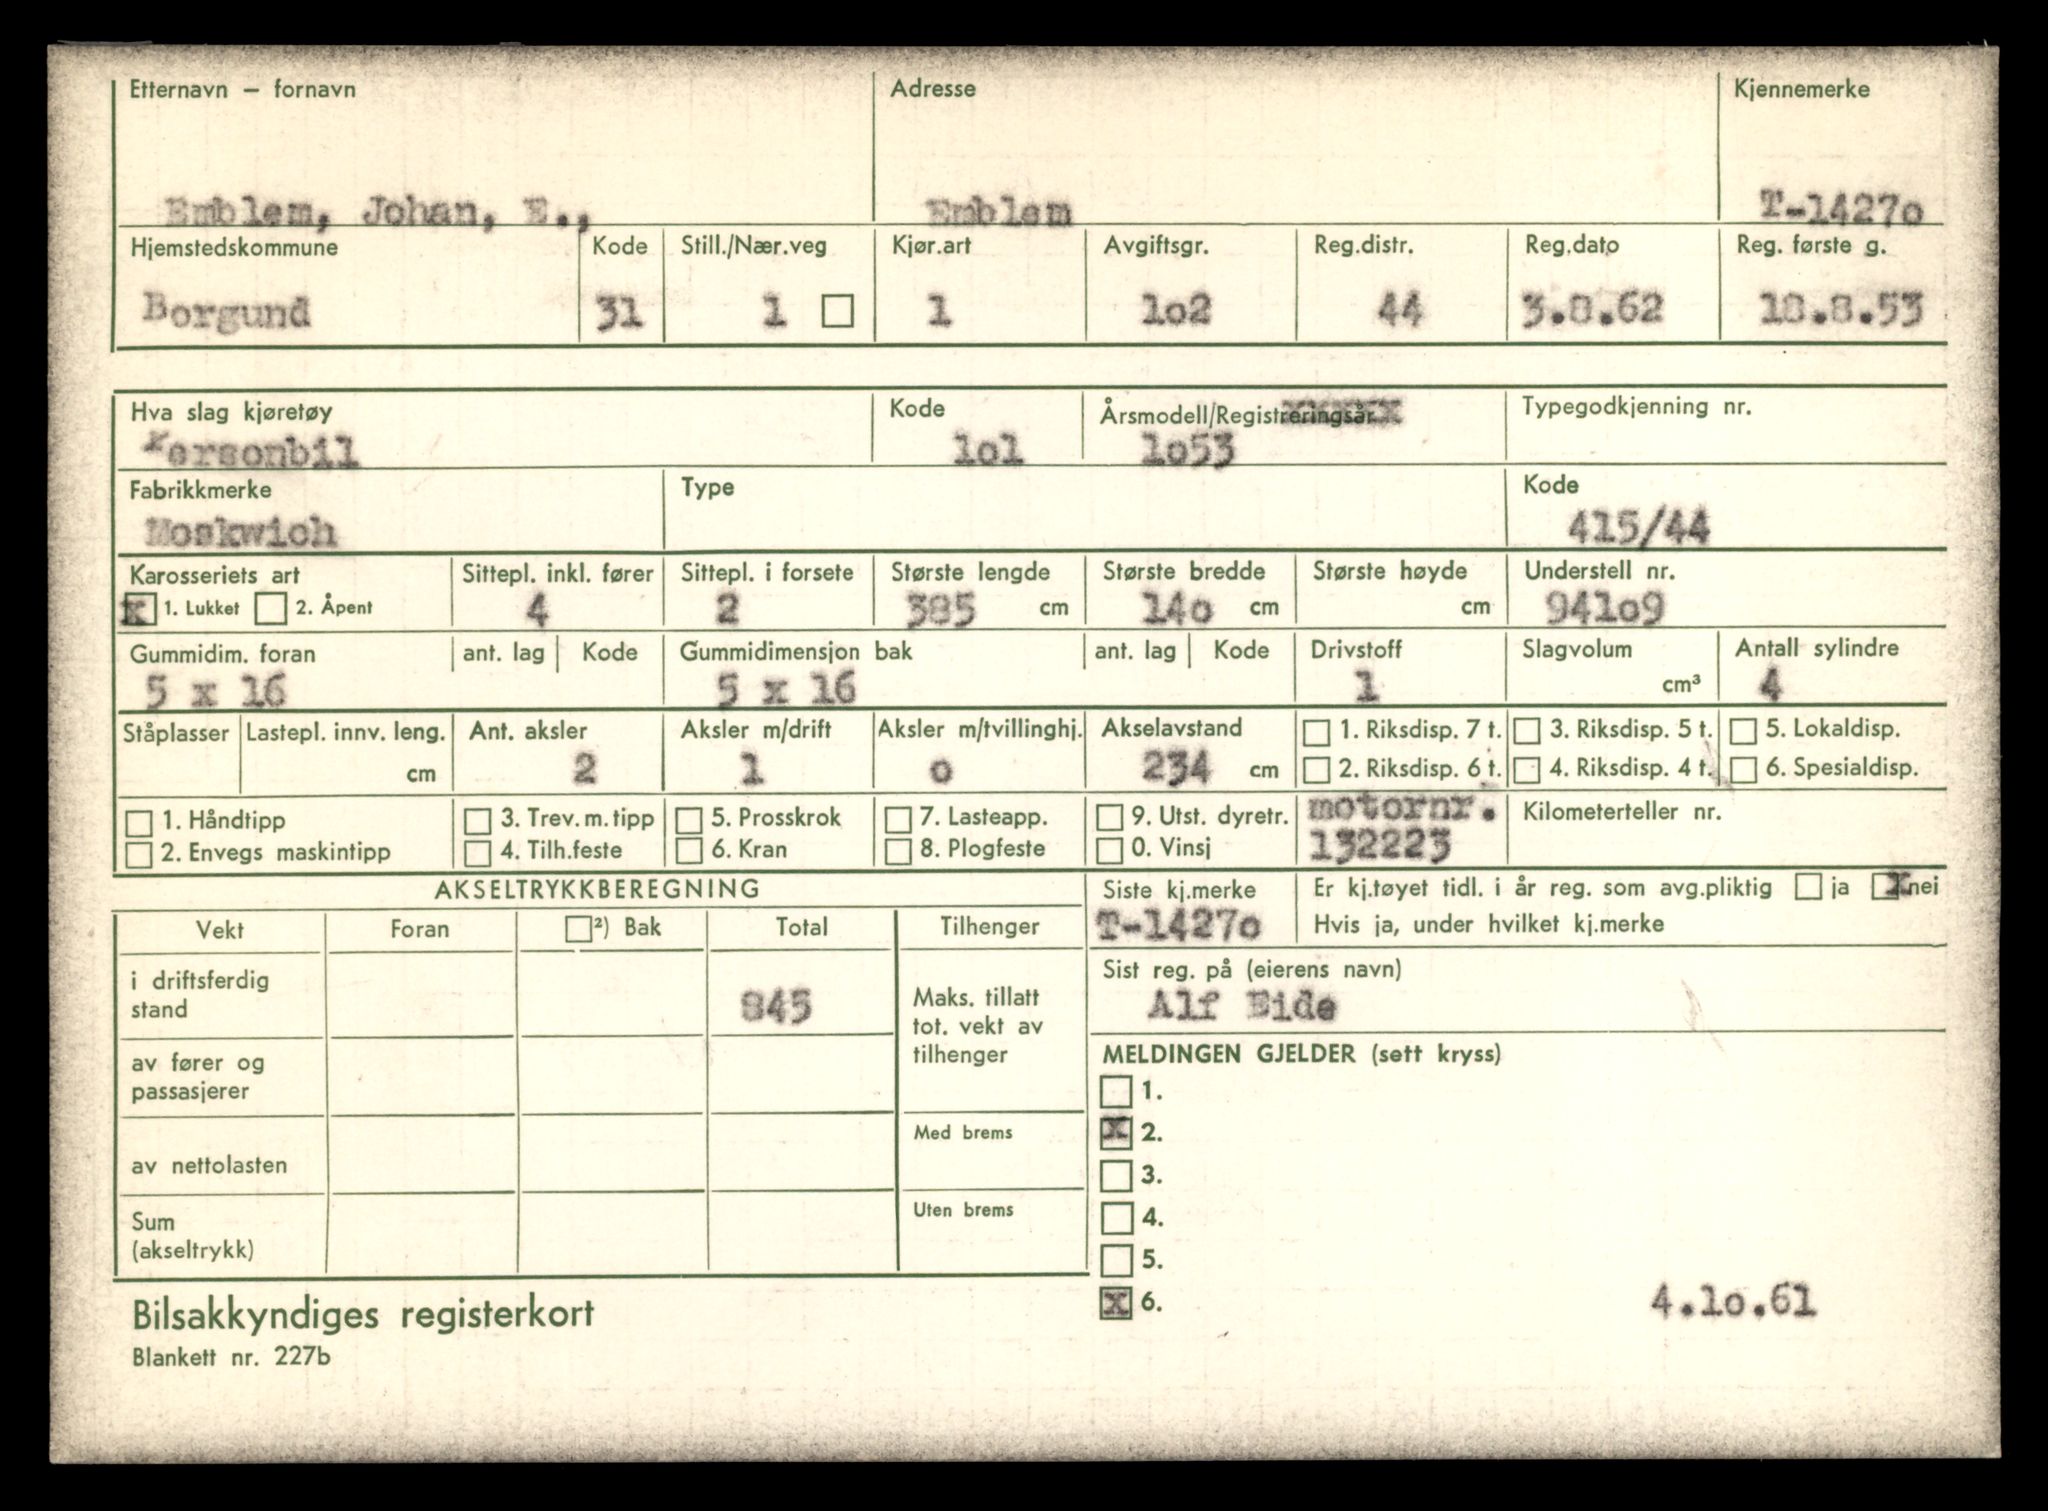 Etternavn – fornavn Adresse Kjennemerke
Emblem, Johan, E., Emblem T-1427o
Hjemstedskommune Kode Still./Nær.veg Kjør.art Avgiftsgr. Reg.distr. Reg.dato Reg. første g.
Borgund 31 1 1 1o2 44 3.8.62 18.8.53
Hva slag kjøretøy Kode Årsmodell/Registreringsår Typegodkjenning nr.
Personbil lol 1o53
Fabrikkmerke Type Kode
Moskwich 415/44
Karosseriets art Sittepl. inkl. fører Sittepl. i forsete Største lengde Største bredde Største høyde Understell nr.
x 1. Lukket 2. Åpent 4 2 385 cm 14o cm cm 941o9
Gummidim. foran ant. lag Kode Gummidimensjon bak ant. lag Kode Drivstoff Slagvolum Antall sylindre
5 x 16 5 x 16 1 cm³ 4
Ståplasser Lastepl. innv. leng. Ant. aksler Aksler m/drift Aksler m/tvillinghj. Akselavstand 1. Riksdisp. 7 t. 3. Riksdisp. 5 t. 5. Lokaldisp.
cm 2 1 o 234 cm 2. Riksdisp. 6 t. 4. Riksdisp. 4 t. 6. Spesialdisp.
1. Håndtipp 3. Trev. m. tipp 5. Prosskrok 7. Lasteapp. 9. Utst. dyretr. motornr. Kilometerteller nr.
2. Envegs maskintipp 4. Tilh.feste 6. Kran 8. Plogfeste 0. Vinsj 132223
AKSELTRYKKBEREGNING Siste kj.merke Er kj.tøyet tidl. i år reg. som avg.pliktig ja x nei
Vekt Foran ²) Bak Total Tilhenger T-1427o Hvis ja, under hvilket kj.merke
i driftsferdig
stand 845
Maks. tillatt
tot. vekt av
tilhenger
Sist reg. på (eierens navn)
Alf Eide
av fører og
passasjerer
MELDINGEN GJELDER (sett kryss)
1.
Med brems x 2.
av nettolasten 3.
Uten brems 4.
Sum
(akseltrykk) 5.
x 6. 4.1o.61
Bilsakkyndiges registerkort
Blankett nr. 227b